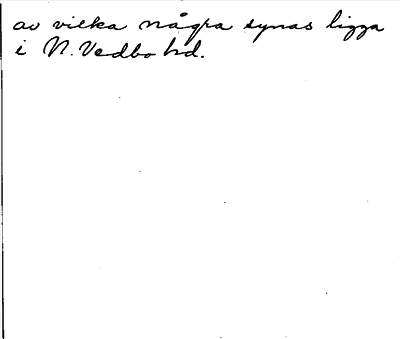 av vilka några synas ligga
i N. Vedbo hd.